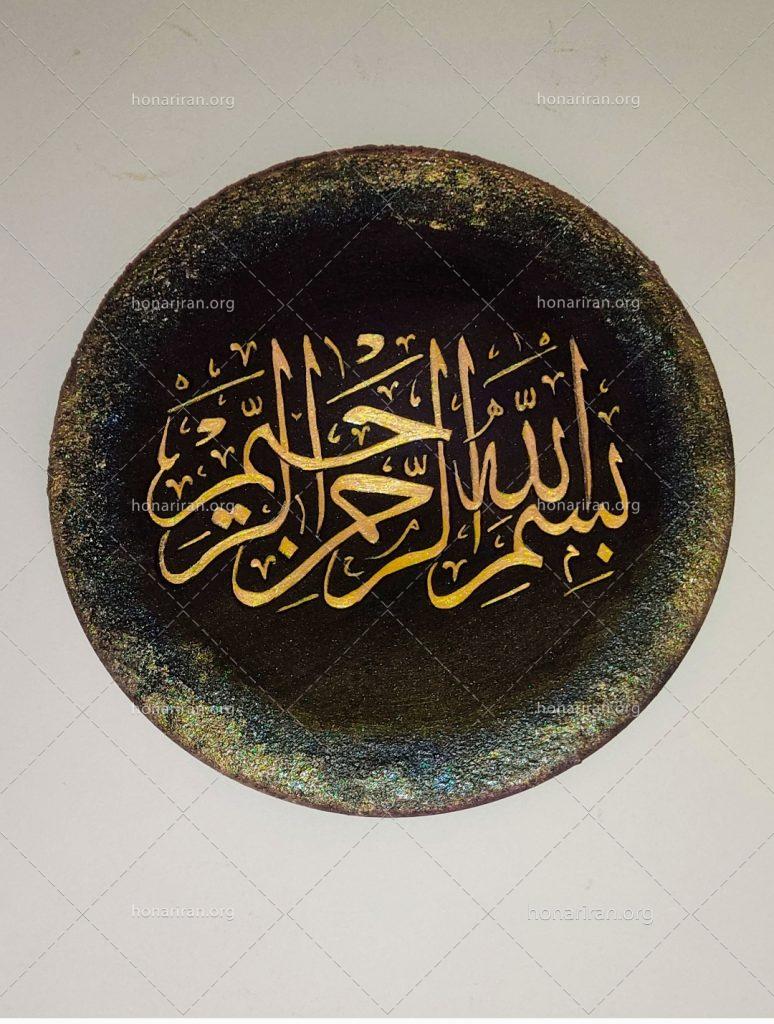 honariran.org honariran.org
honariran.org honariran.org
بسم الله الرحمن الرحيم
honariran.org honariran.org
honariran.org honariran.org
honariran.org honariran.org